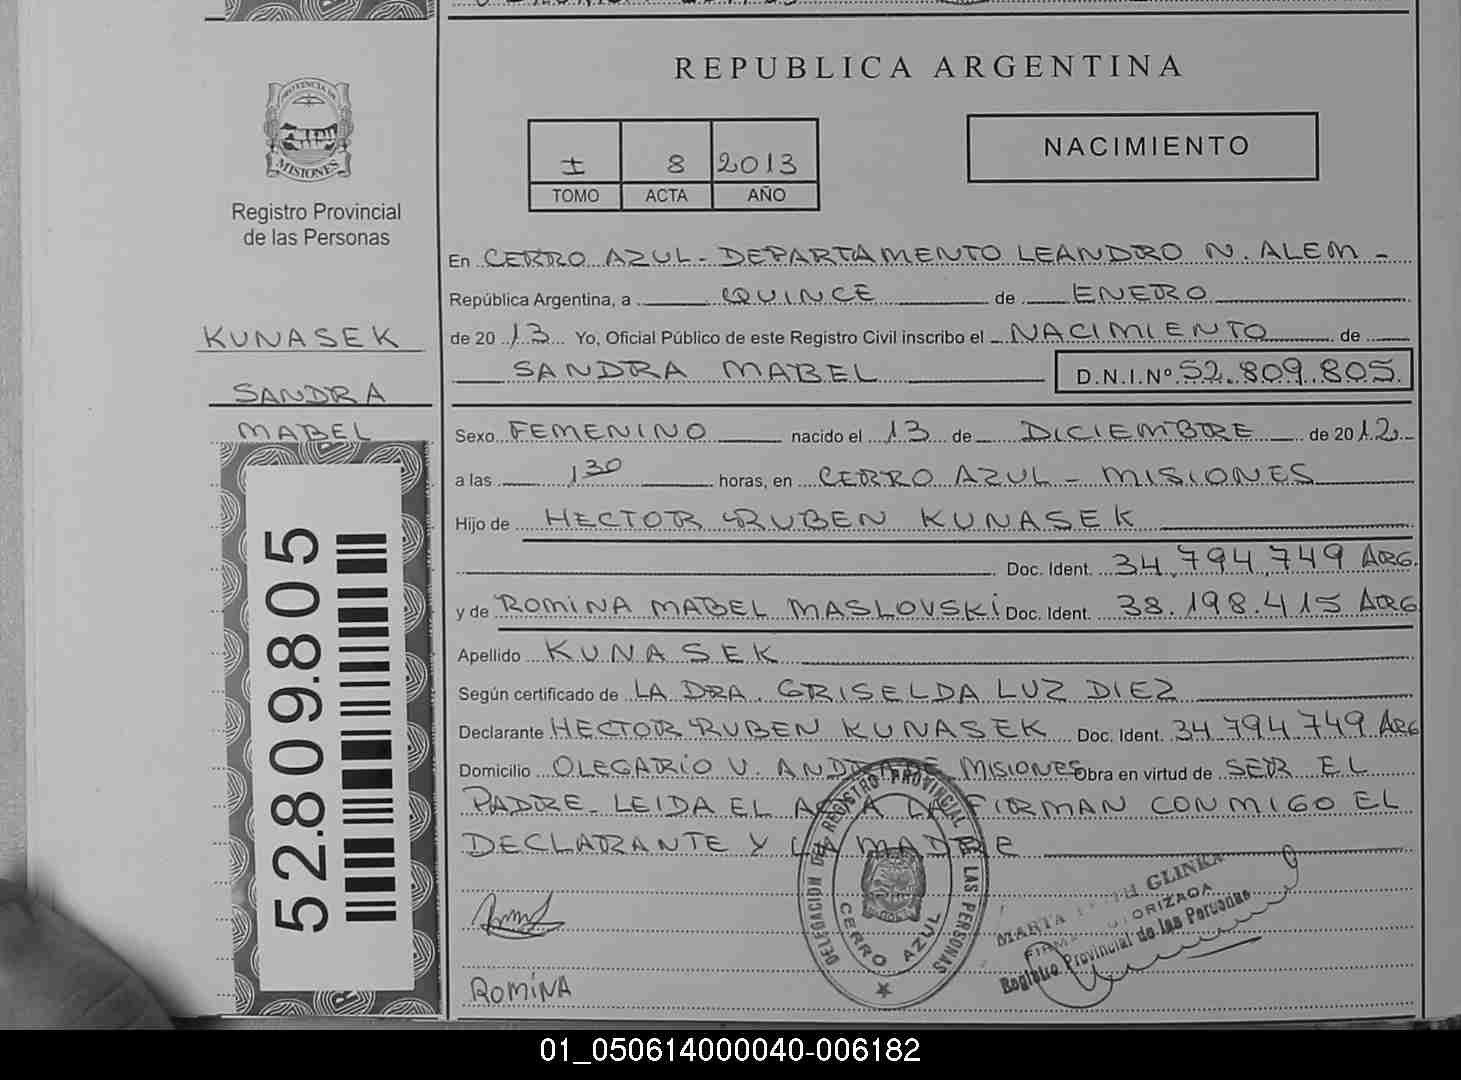 REPUBLICA ARGENTINA
PROVINCIA DE
MISIONES
Registro Provincial
de las Personas
I 8 2013
TOMO ACTA AÑO
NACIMIENTO
KUNASEK
SANDRA
MABEL
52.809.805
En CERRO AZUL - DEPARTAMENTO LEANDRO N. ALEM -
República Argentina, a QUINCE de ENERO
de 2013 Yo, Oficial Público de este Registro Civil inscribo el NACIMIENTO de
SANDRA MABEL D.N.I.Nº 52.809.805
Sexo FEMENINO nacido el 13 de DICIEMBRE de 2012
a las 1 30 horas, en CERRO AZUL - MISIONES
Hijo de HECTOR RUBEN KUNASEK
Doc. Ident. 34.794.749 ARG.
y de ROMINA MABEL MASLOVSKI Doc. Ident. 38.198.415 ARG
Apellido KUNASEK
Según certificado de LA DRA. GRISELDA LUZ DIEZ
Declarante HECTOR RUBEN KUNASEK Doc. Ident. 34.794.749 ARG
Domicilio OLEGARIO V. ANDRADE MISIONES Obra en virtud de SER EL
PADRE - LEIDA EL ACTA LA FIRMAN CONMIGO EL
DECLARANTE Y LA MADRE
DELEGACION DEL REGISTRO PROVINCIAL DE LAS PERSONAS
CERRO AZUL
MARTA GLINKA
FIRMA AUTORIZADA
Registro Provincial de las Personas
ROMINA
01_050614000040-006182